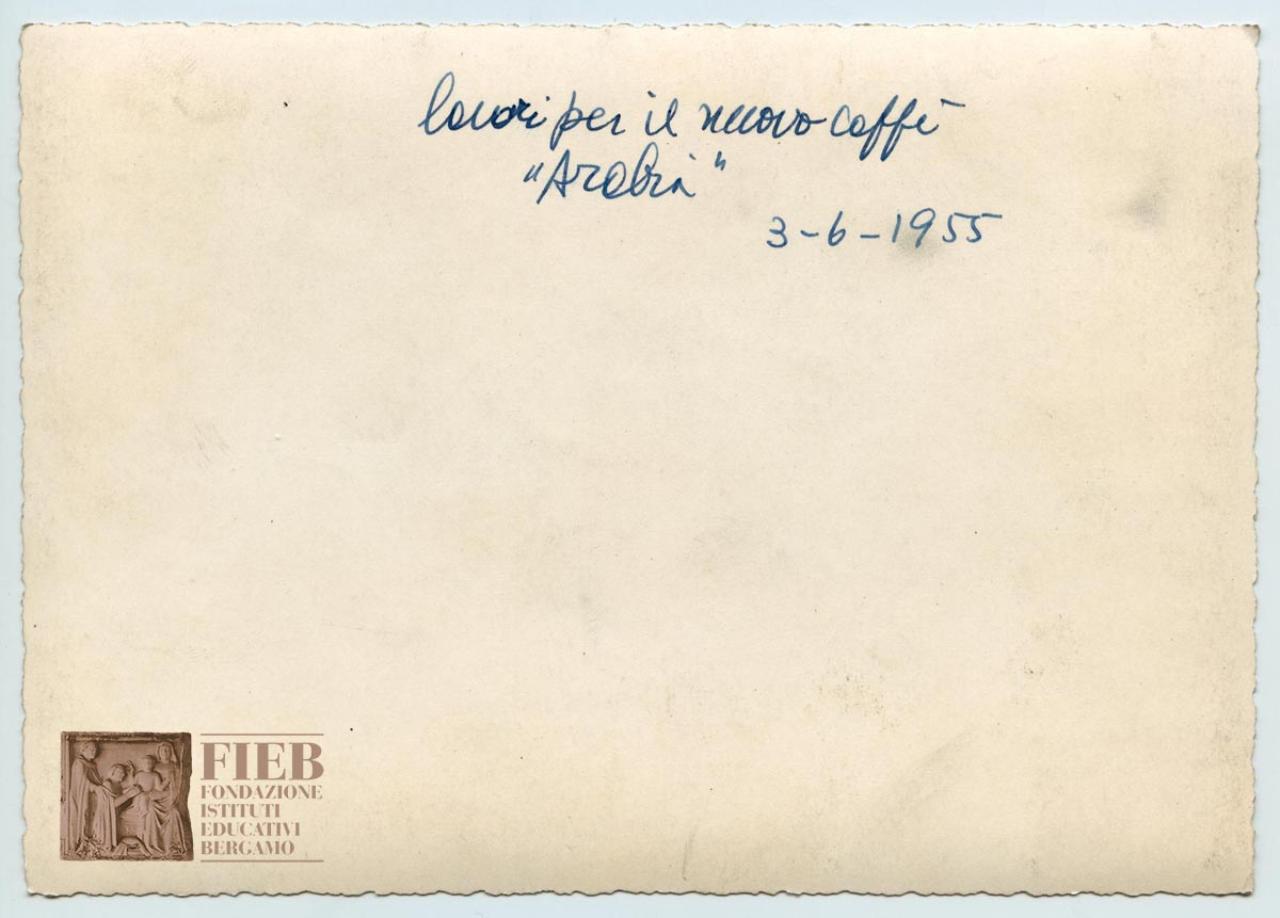 lavori per il nuovo caffè
"Arabia"
3-6-1955
FIEB
FONDAZIONE
ISTITUTI
EDUCATIVI
BERGAMO